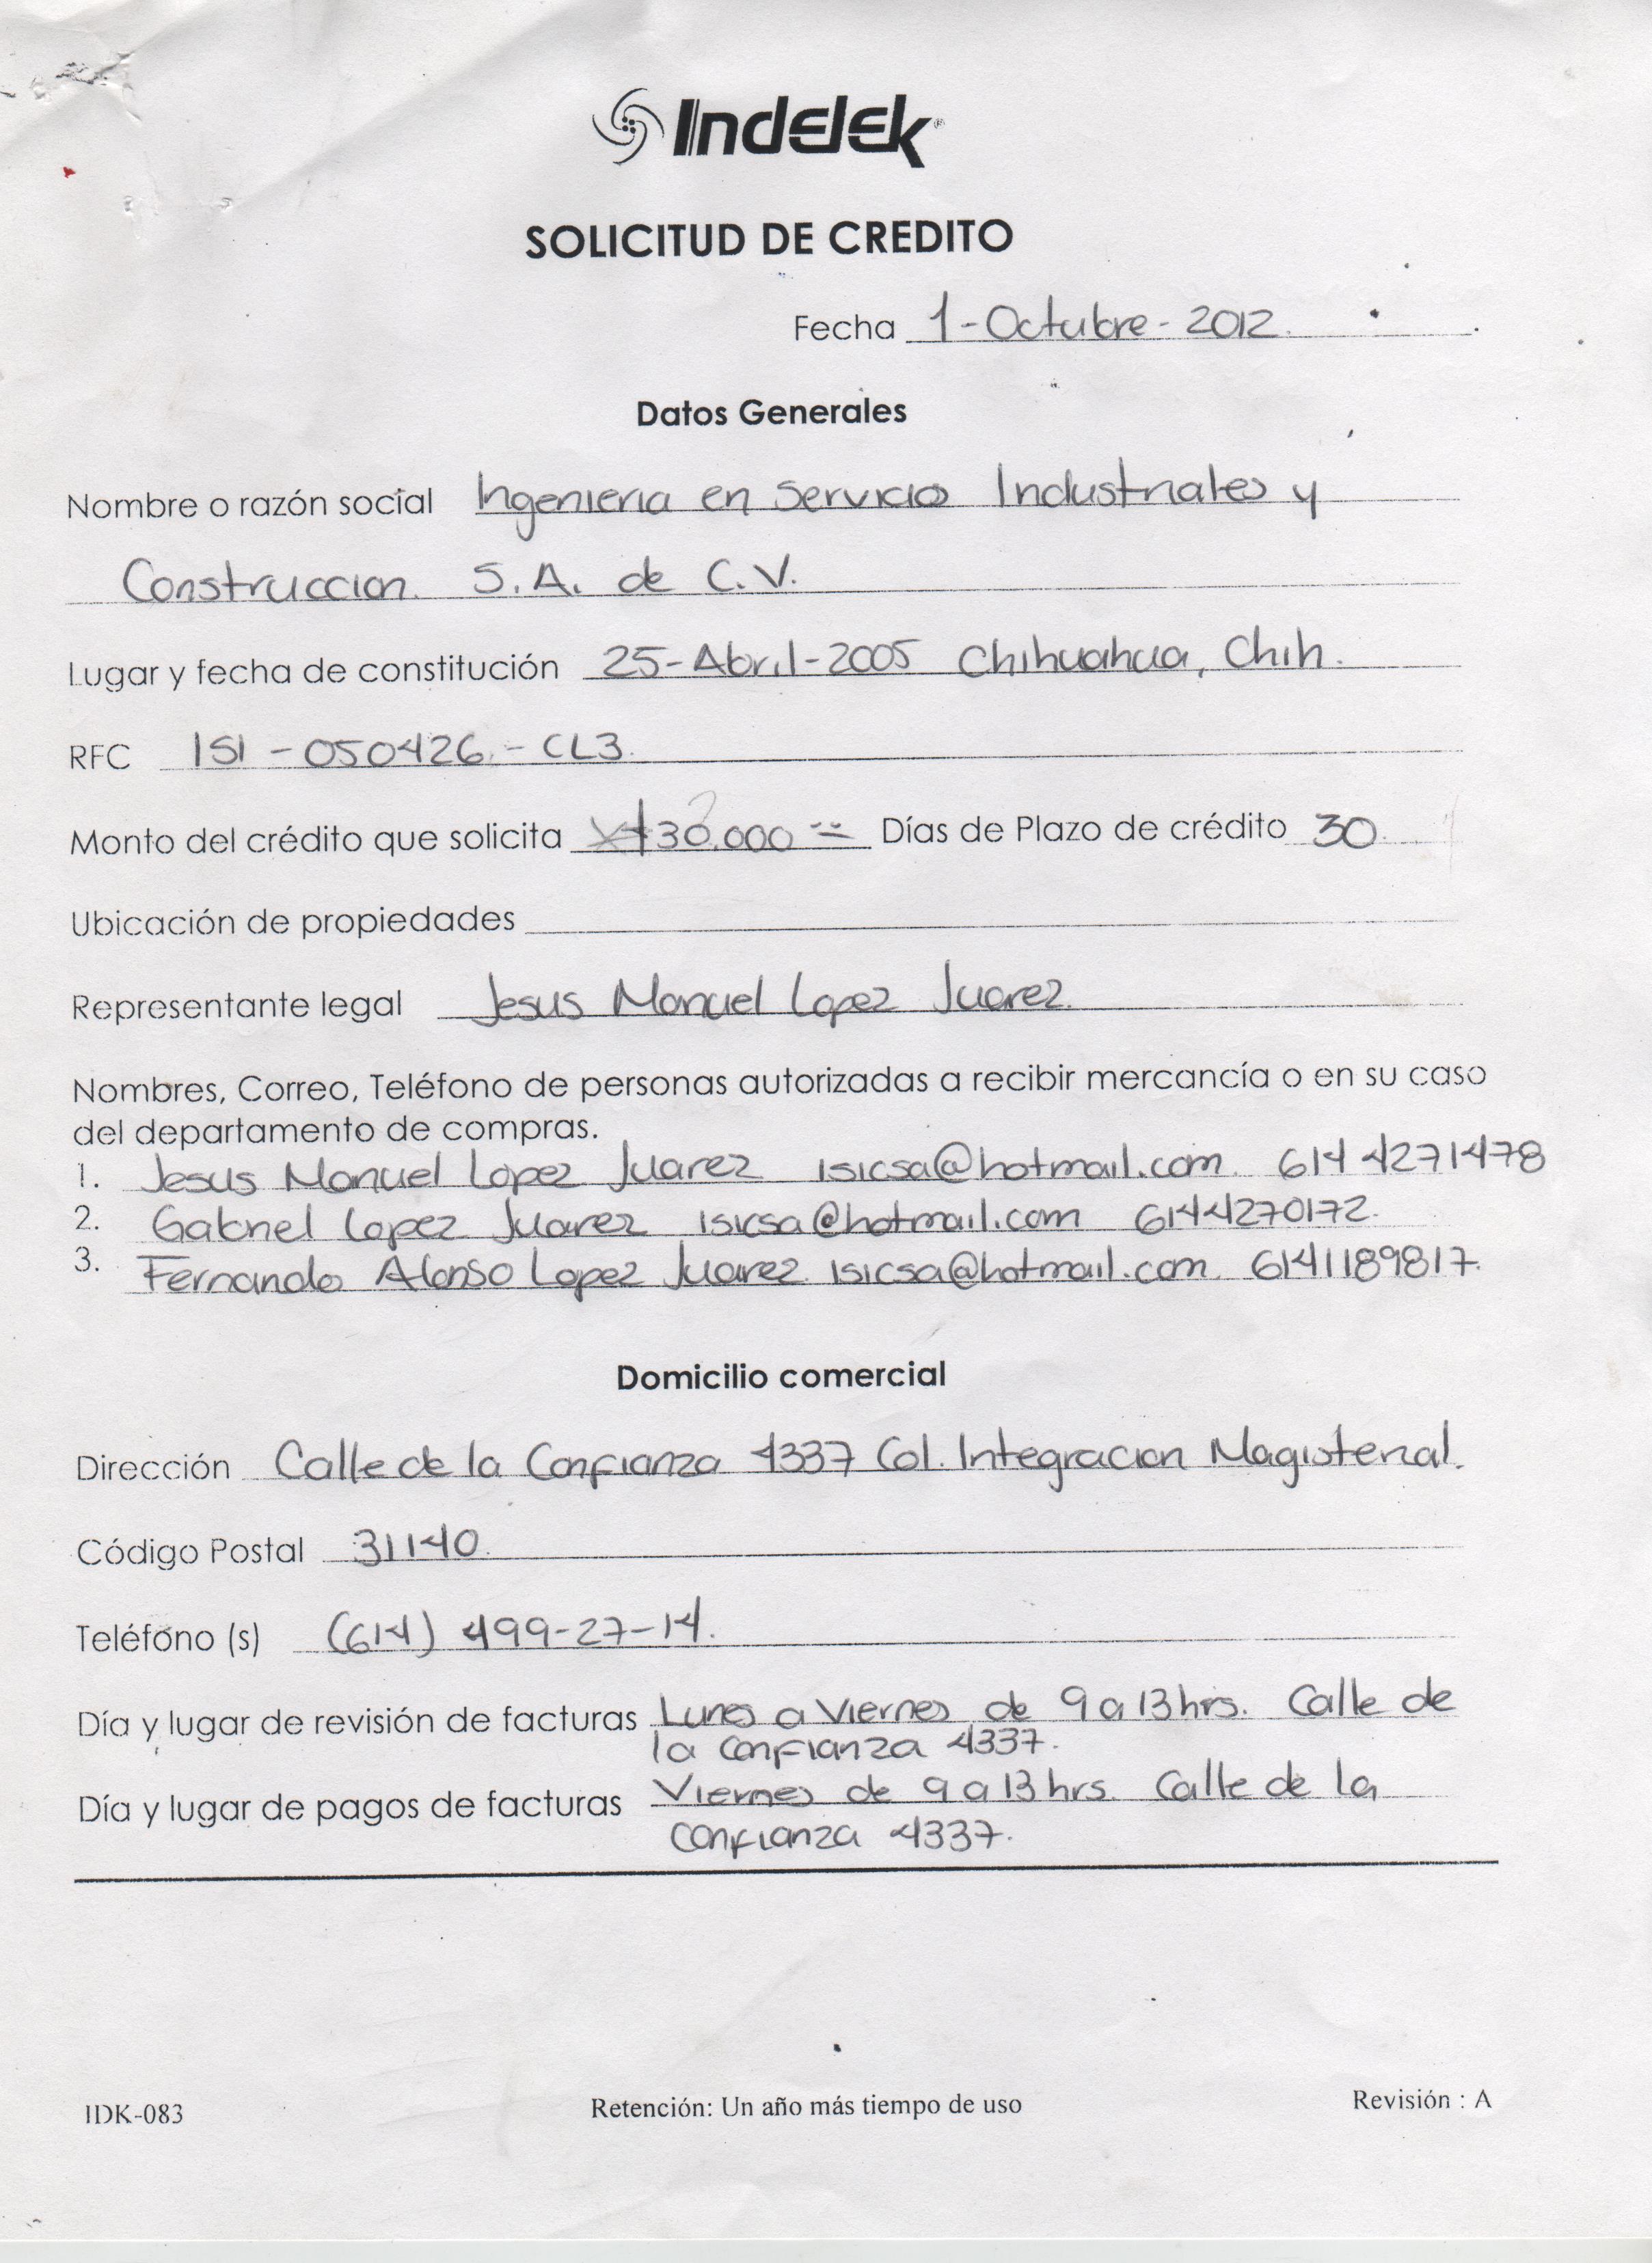 Indelek
SOLICITUD DE CREDITO
Fecha 1-Octubre-2012.
Datos Generales
Nombre o razón social Ingenieria en Servicios Industriales y
Construccion S.A. de C.V.
Lugar y fecha de constitución 25-Abril-2005 Chihuahua, Chih.
RFC ISI-050426-CL3
Monto del crédito que solicita $30,000 Días de Plazo de crédito 30
Ubicación de propiedades
Representante legal Jesus Manuel Lopez Juarez
Nombres, Correo, Teléfono de personas autorizadas a recibir mercancía o en su caso
del departamento de compras.
1. Jesus Manuel Lopez Juarez isicsa@hotmail.com 614 4271478
2. Gabriel Lopez Juarez isicsa@hotmail.com 6144270172.
3. Fernando Alonso Lopez Juarez isicsa@hotmail.com 6141189817.
Domicilio comercial
Dirección Calle de la Confianza 4337 Col. Integracion Magisterial.
Código Postal 31140
Teléfono (s) (614) 499-27-14.
Día y lugar de revisión de facturas Lunes a Viernes de 9 a 13 hrs. Calle de
la Confianza 4337.
Día y lugar de pagos de facturas Viernes de 9 a 13 hrs. Calle de la
Confianza 4337.
IDK-083 Retención: Un año más tiempo de uso Revisión : A